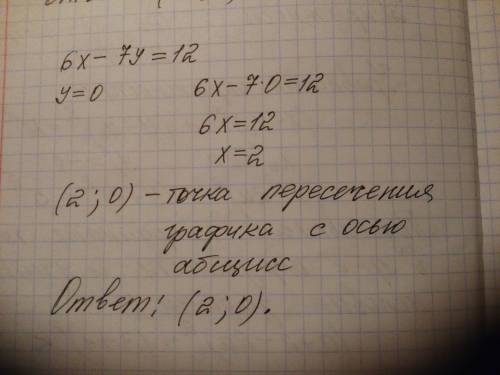 6x - 7y = 12
y = 0 6x - 7·0 = 12
6x = 12
x = 2
(2; 0) - точка пересечения
графика с осью
абцисс
Ответ: (2; 0).